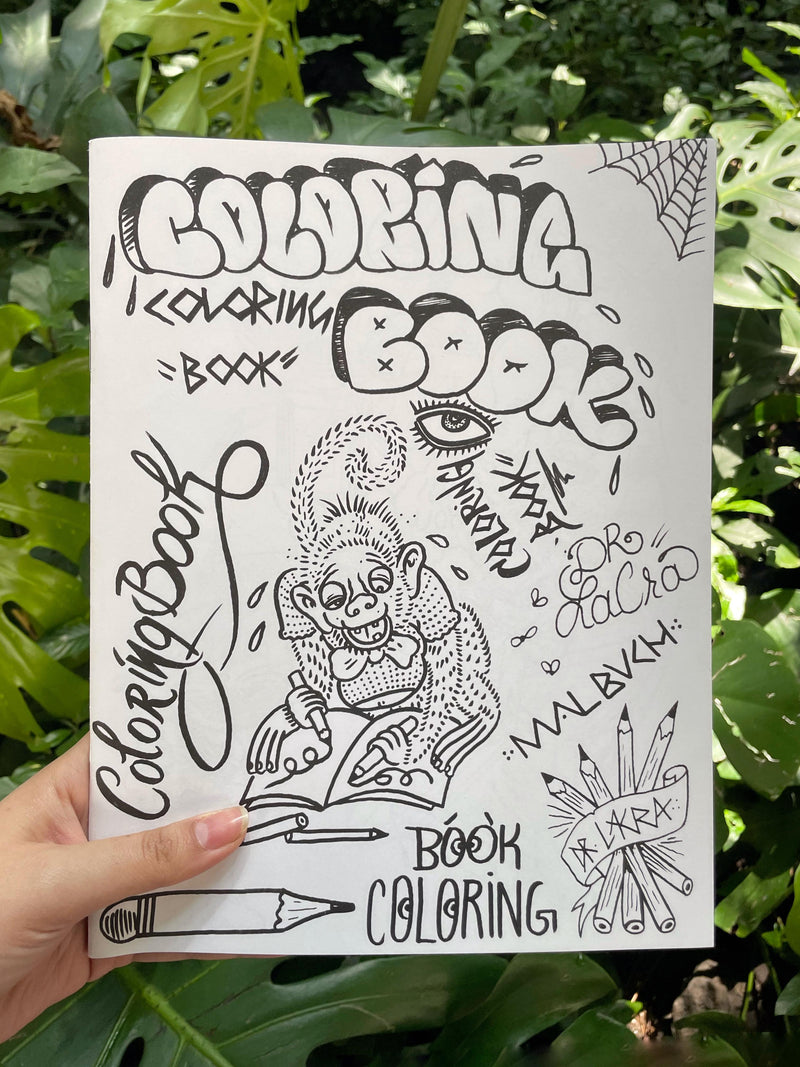 COLORiNG
COLORING
"BOOK"
BOOK
COLORING
BOOK
ColoRiNgBook
DR
LaCra
MALBUCH
DR. LAKRA
BÓÒK
COLORiNG